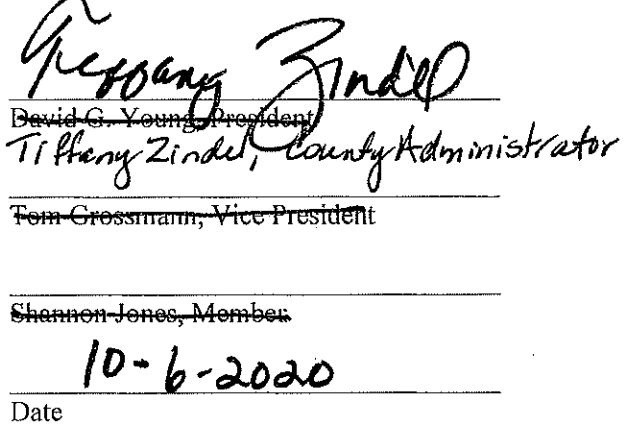 Tiffany Zindel
David G. Young, President
Tiffany Zindel, County Administrator
Tom Grossmann, Vice President
Shannon Jones, Member
10-6-2020
Date